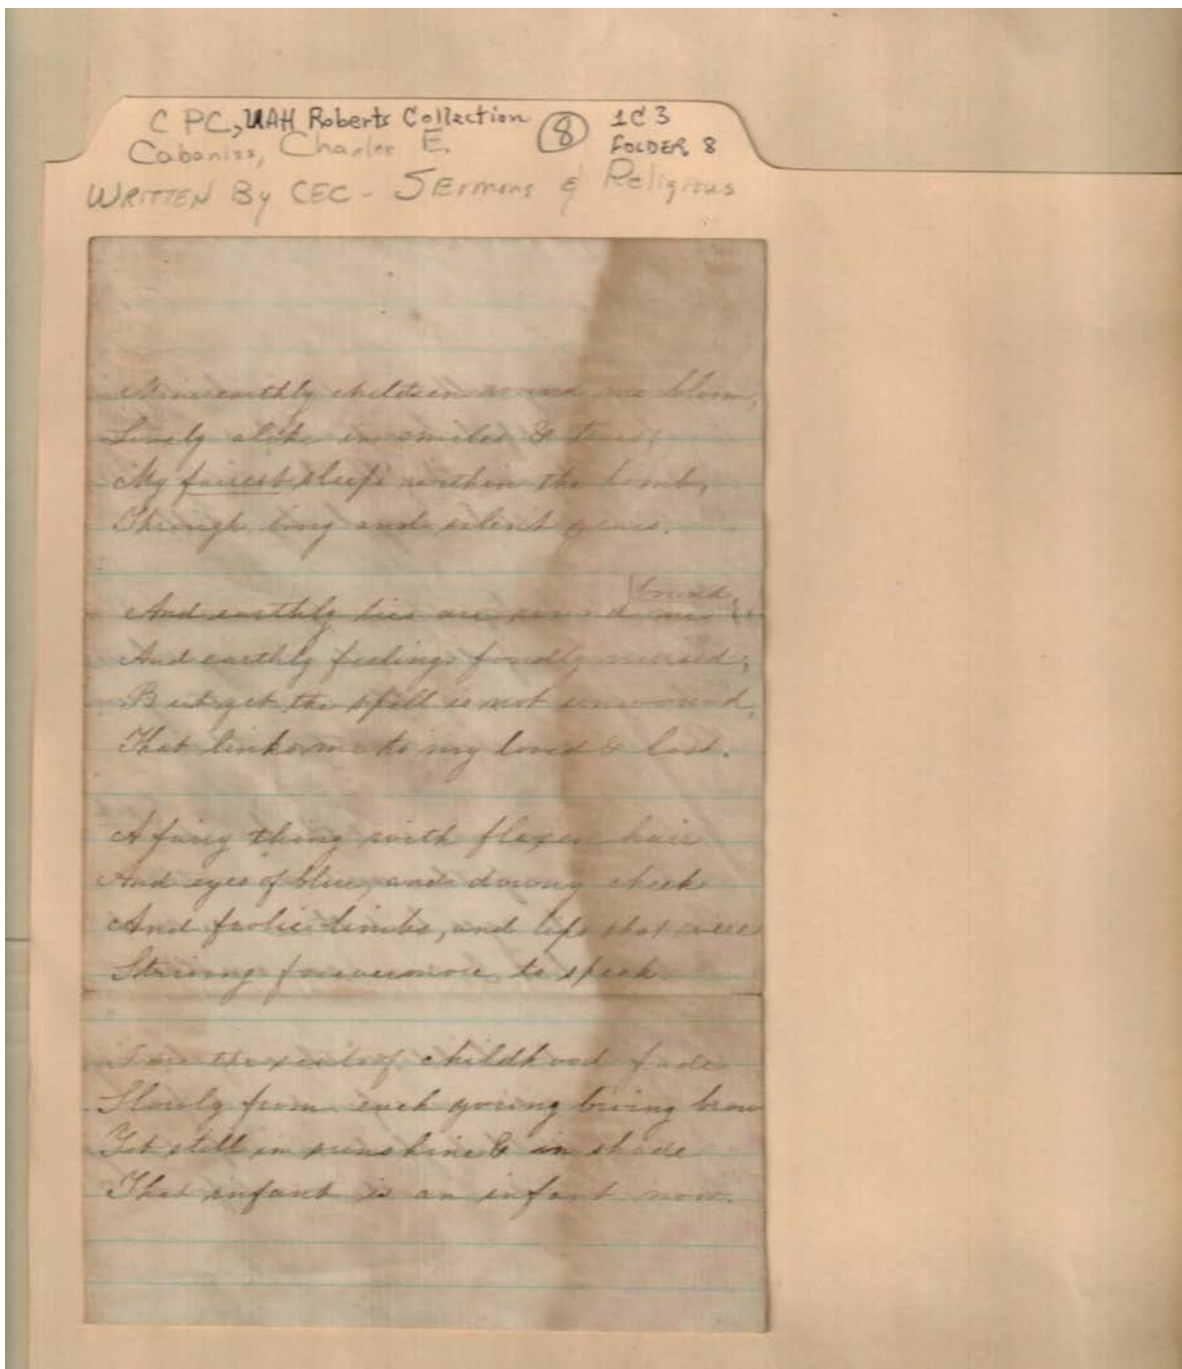 C PC, UAH Roberts Collection
8
1C3
Cabaniss, Charles E.
FOLDER 8
WRITTEN By CEC - SErmons & Religious
earthly children around me bloom,
Lovely alike in smiles & tears;
My fairest sleeps within the tomb,
Through long and silent years.
bound,
And earthly ties are round me
And earthly feelings fondly nursed;
But yet the spell is not unwound,
That links me to my loved & lost.
A fairy thing with flaxen hair
And eyes of blue, and downy cheek
And frolic limbs, and lips that were
Striving forevermore to speak
I see the seal of childhood fade
Slowly from each young living brow
Yet still in sunshine & in shade
That infant is an infant now.